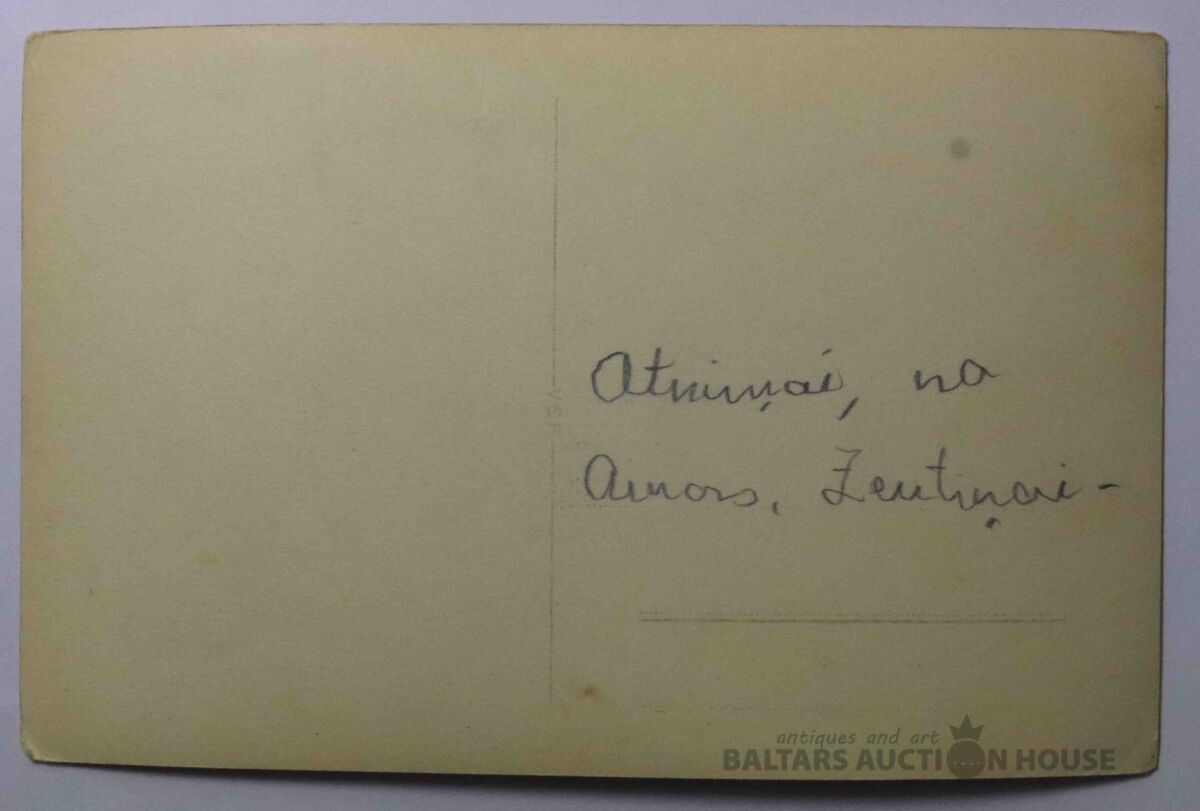 Atmiņai, no
Ainors. Zentiņai-
VEF
antiques and art
BALTARS AUCTION HOUSE